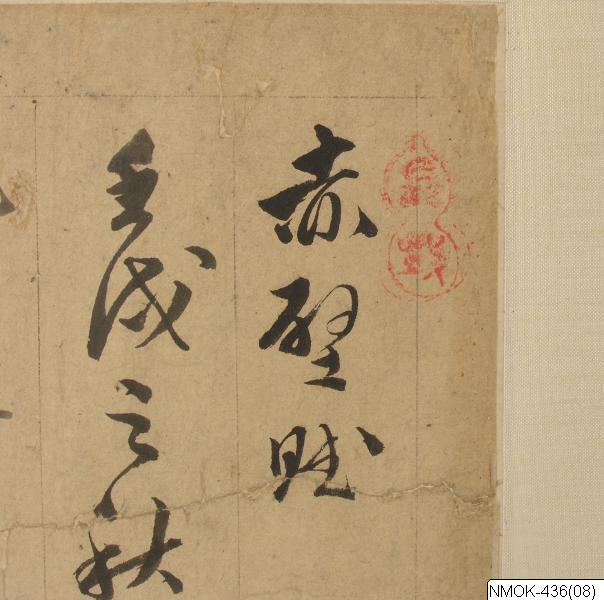 赤壁賦
壬戌之秋
NMOK-436(08)